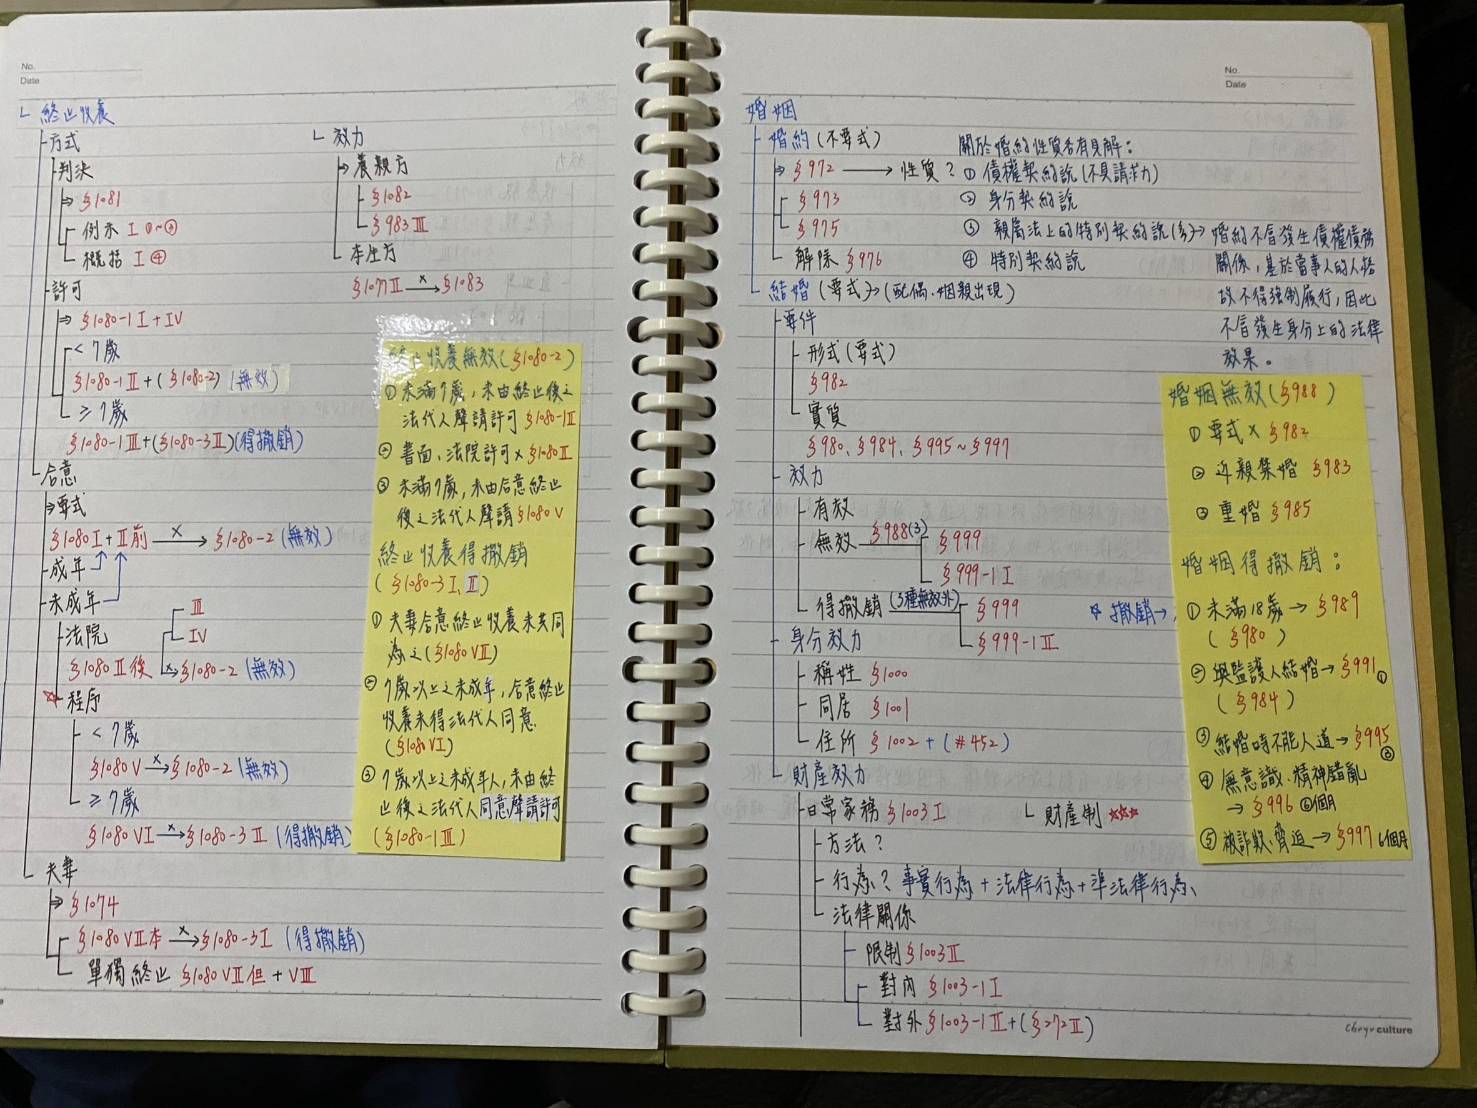 No.
Date
終止收養
方式
判決
⇒ §1081
例示 I ①~③
概括 I ④
許可
⇒ §1080-1 I + IV
< 7歲
§1080-1 II + (§1080-2) (無效)
≥ 7歲
§1080-1 III + (§1080-3 II) (得撤銷)
合意
⇒ 要式
§1080 I + II前 x→ §1080-2 (無效)
成年
未成年
法院
III
IV
§1080 II後 x→ §1080-2 (無效)
☆ 程序
< 7歲
§1080 V x→ §1080-2 (無效)
≥ 7歲
§1080 VI x→ §1080-3 II (得撤銷)
夫妻
⇒ §1074
§1080 VII本 x→ §1080-3 I (得撤銷)
單獨終止 §1080 VII但 + VIII
效力
⇒ 養親方
§1082
§983 III
本生方
§1077 II x→ §1083
終止收養無效(§1080-2)
① 未滿7歲,未由終止後之
法代人聲請許可 §1080-1 II
② 書面、法院許可 x §1080 II
③ 未滿7歲,未由合意終止
後之法代人聲請 §1080 V
終止收養得撤銷
(§1080-3 I、II)
① 夫妻合意終止收養未共同
為之(§1080 VII)
② 7歲以上之未成年,合意終止
收養未得法代人同意.
(§1080 VI)
③ 7歲以上之未成年人,未由終
止後之法代人同意聲請許可
(§1080-1 III)
No.
Date
婚姻
婚約 (不要式)
⇒ §972 → 性質?
§973
§975
解除 §976
關於婚約性質各有見解:
① 債權契約說 (不具請求力)
② 身分契約說
③ 親屬法上的特別契約說(多)→ 婚約不會發生債權債務
關係,基於當事人的人格
故不得強制履行,因此
不會發生身分上的法律
效果。
④ 特別契約說
結婚 (要式)→(配偶、姻親出現)
要件
形式 (要式)
§982
實質
§980、§984、§995~§997
效力
有效
無效 §988(3)
§999
§999-1 I
得撤銷 (3種無效外)
§999
§999-1 II
身分效力
稱姓 §1000
同居 §1001
住所 §1002 + (#452)
財產效力
日常家務 §1003 I
方法?
行為? 事實行為 + 法律行為 + 準法律行為
法律關係
限制 §1003 II
對內 §1003-1 I
對外 §1003-1 II + (§272 II)
財產制 ☆☆☆
☆ 撤銷→
婚姻無效(§988)
① 要式 x §982
② 近親禁婚 §983
③ 重婚 §985
婚姻得撤銷:
① 未滿18歲 → §989
(§980)
② 與監護人結婚 → §991 ①
(§984)
③ 結婚時不能人道 → §995 ③
④ 無意識、精神錯亂
→ §996 ⑥個月
⑤ 被詐欺、脅迫 → §997 6個月
culture